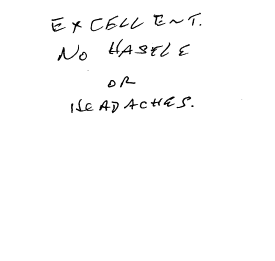 EXCELLENT.
NO HASELE
OR
HEADACHES.